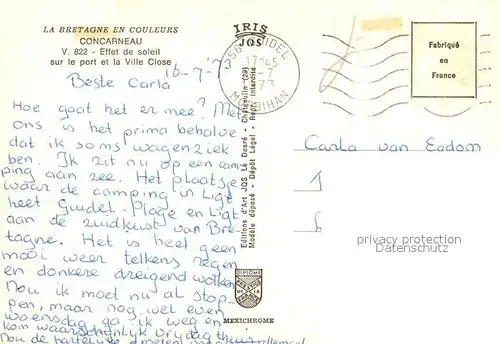 LA BRETAGNE EN COULEURS
CONCARNEAU
V. 822 - Effet de soleil
sur le port et la Ville Close
IRIS
JOS
56 GUIDEL
17H45
MORBIHAN
Fabriqué
en
France
16-7-'73
Beste Carla
Hoe gaat het er mee? Met
ons is het prima behalve
dat ik soms wagenziek
ben. Ik zit nu op een cam
ping aan zee. Het plaatsje
waar de camping in ligt
heet Guidel-Plage en ligt
aan de zuidkust van Bre-
tagne. Het is heel geen
mooi weer telkens regen
en donkere dreigend wolken
Nou ik moet nu al stop-
pen, maar nog wel even
woensdag ga ik weg en
kom waarschijnlijk vrijdag thuis
Nou de hartelijke groeten
Editions d'Art JOS Le Doaré - Châteaulin (29)
Modèle déposé - Dépôt Légal - Rept. Interdite
Carla van Eadom
1
DIPLOME
PRESTIGE
DE LA
FRANCE
MEXICHROME
privacy protection
Datenschutz